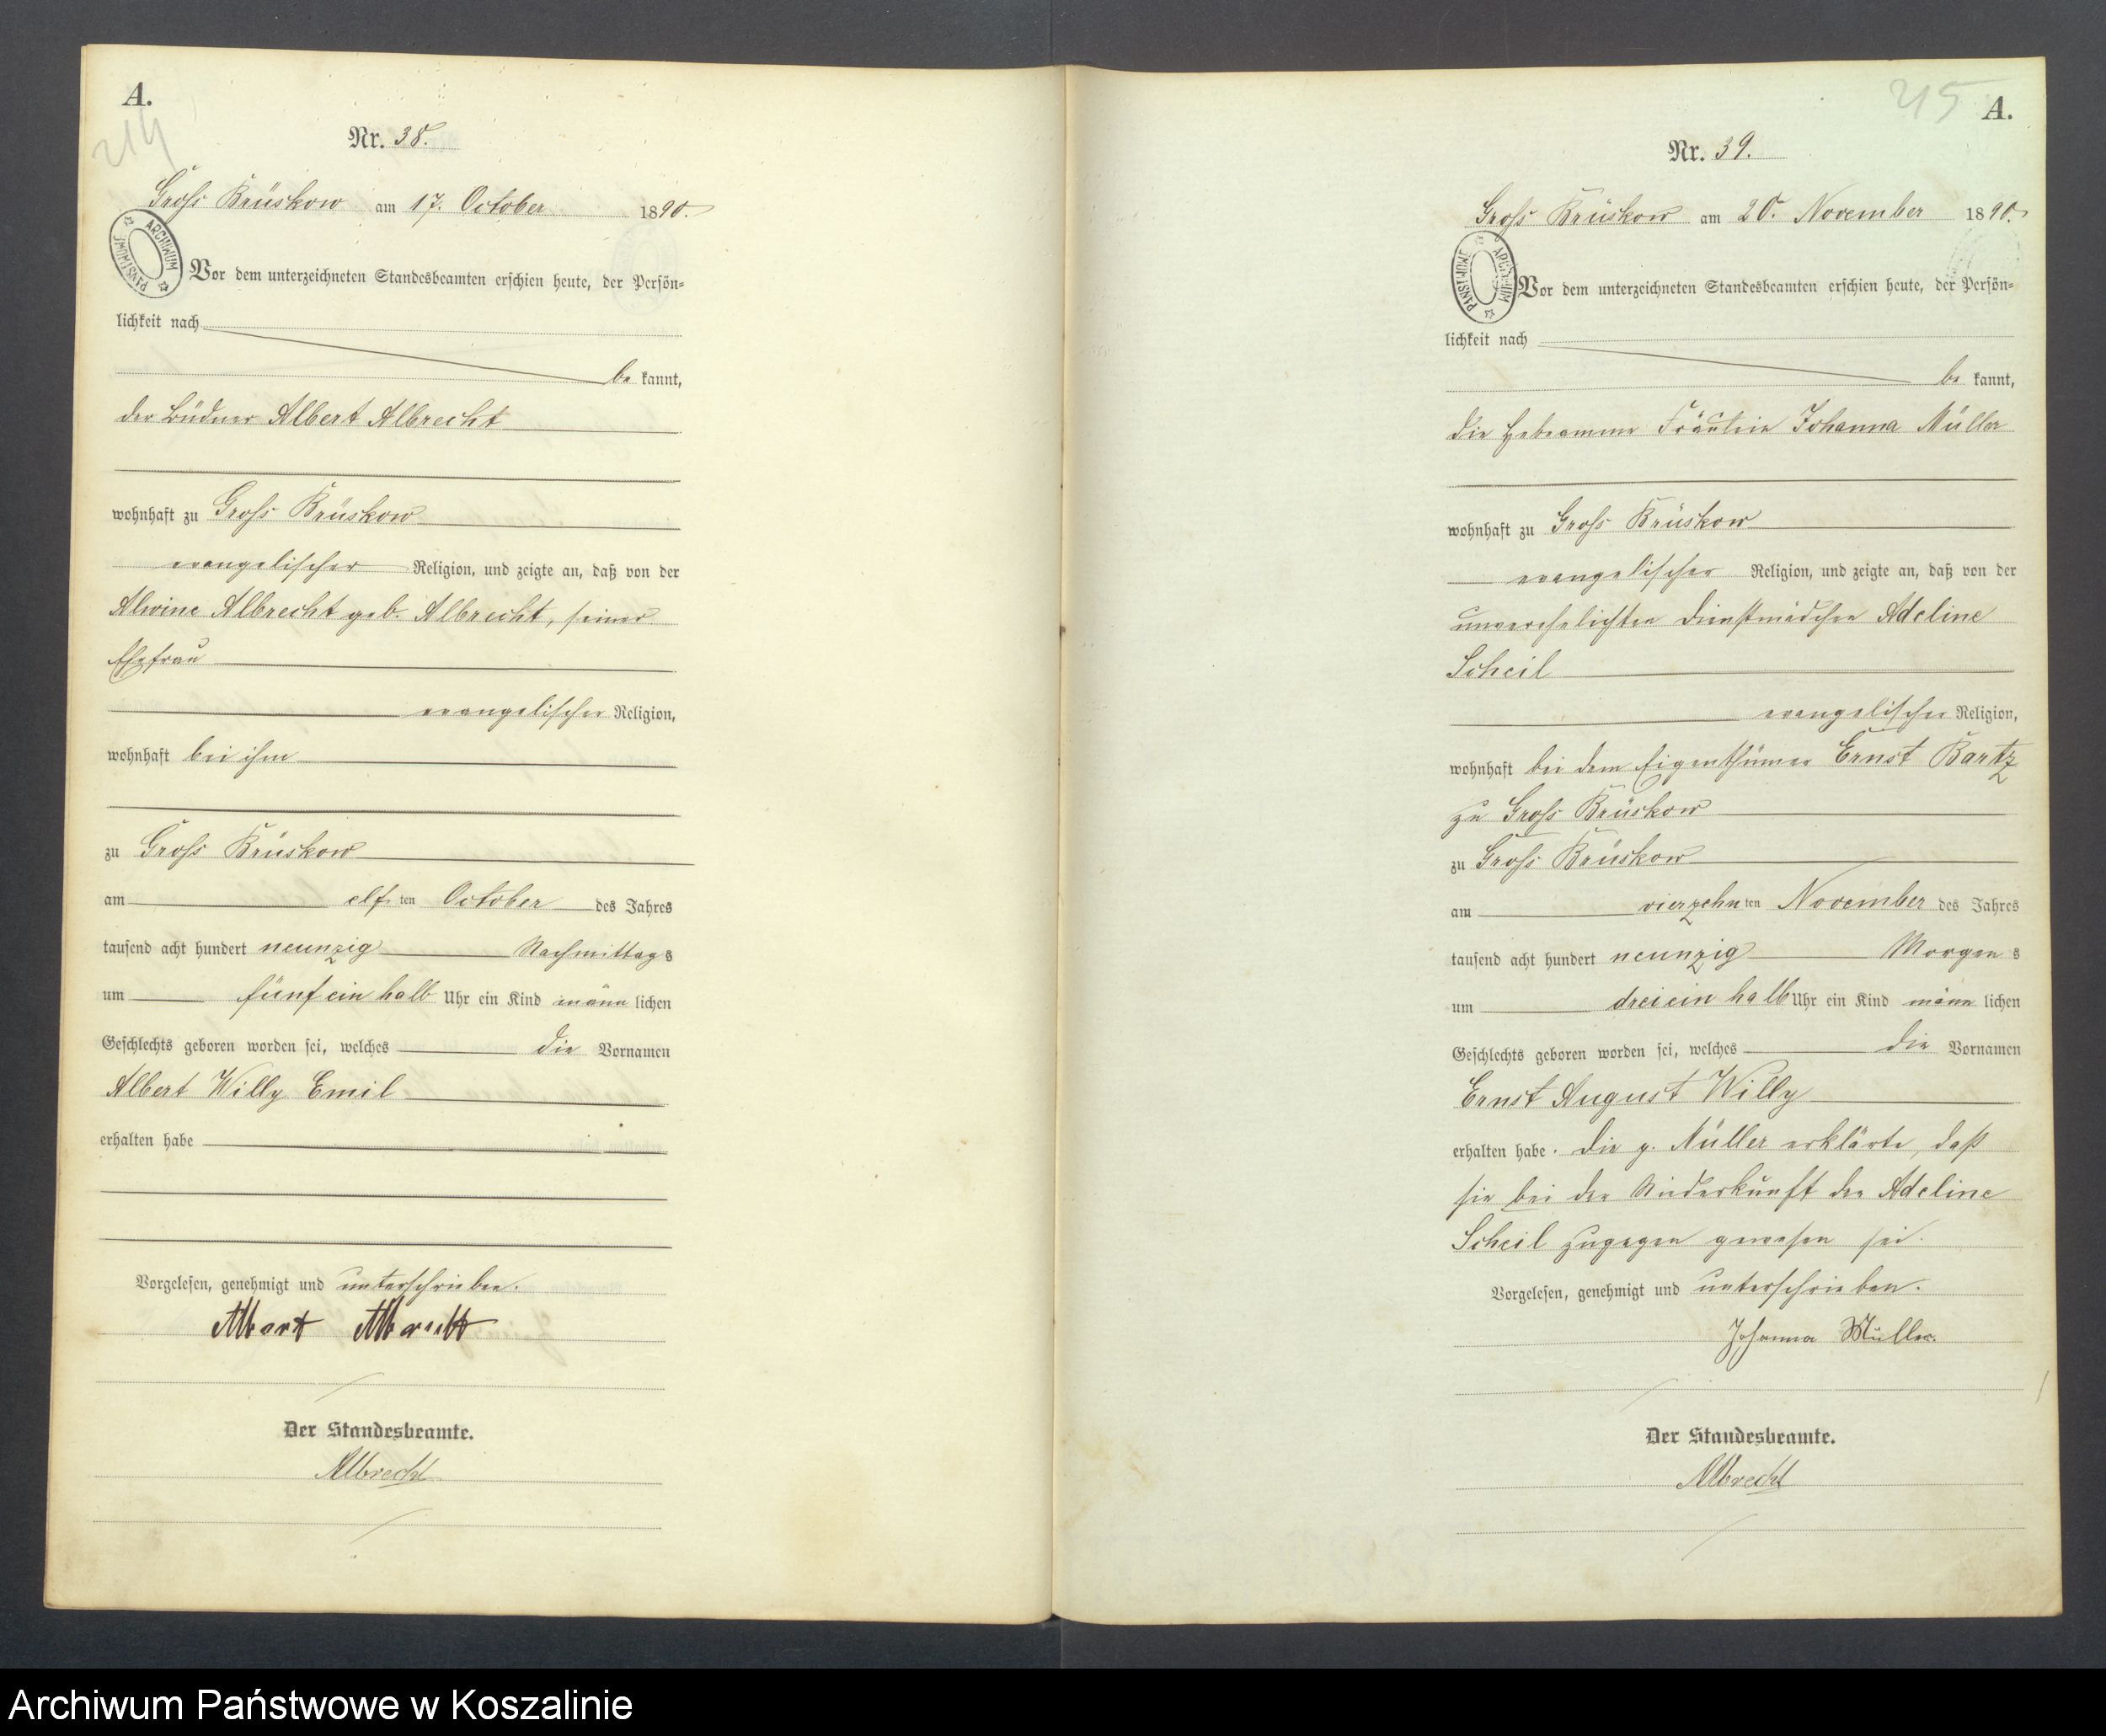 A.
214
Nr. 38.
Groß Brüskow am 17. October 1890.
ARCHIWUM PAŃSTWOWE
Vor dem unterzeichneten Standesbeamten erschien heute, der Persön-
lichkeit nach
be kannt,
der Büdner Albert Albrecht
wohnhaft zu Groß Brüskow
evangelischer Religion, und zeigte an, daß von der
Alwine Albrecht geb. Albrecht, seiner
Ehefrau
evangelischer Religion,
wohnhaft bei ihm
zu Groß Brüskow
am elf ten October des Jahres
tausend acht hundert neunzig Nachmittag s
um fünf ein halb Uhr ein Kind männ lichen
Geschlechts geboren worden sei, welches die Vornamen
Albert Willy Emil
erhalten habe
Vorgelesen, genehmigt und unterschrieben.
Albert Albrecht
Der Standesbeamte.
Albrecht
215
A.
Nr. 39.
Groß Brüskow am 20. November 1890.
ARCHIWUM PAŃSTWOWE
Vor dem unterzeichneten Standesbeamten erschien heute, der Persön-
lichkeit nach
be kannt,
die Hebeamme Fräulein Johanna Müller
wohnhaft zu Groß Brüskow
evangelischer Religion, und zeigte an, daß von der
unverehelichten Dienstmädchen Adeline
Scheil
evangelischer Religion,
wohnhaft bei dem Eigenthümer Ernst Bartz
zu Groß Brüskow
zu Groß Brüskow
am vierzehn ten November des Jahres
tausend acht hundert neunzig Morgen s
um drei ein halb Uhr ein Kind männ lichen
Geschlechts geboren worden sei, welches die Vornamen
Ernst August Willy
erhalten habe. Die p. Müller erklärte, daß
sie bei der Niederkunft der Adeline
Scheil zugegen gewesen sei.
Vorgelesen, genehmigt und unterschrieben.
Johanna Müller.
Der Standesbeamte.
Albrecht
Archiwum Państwowe w Koszalinie